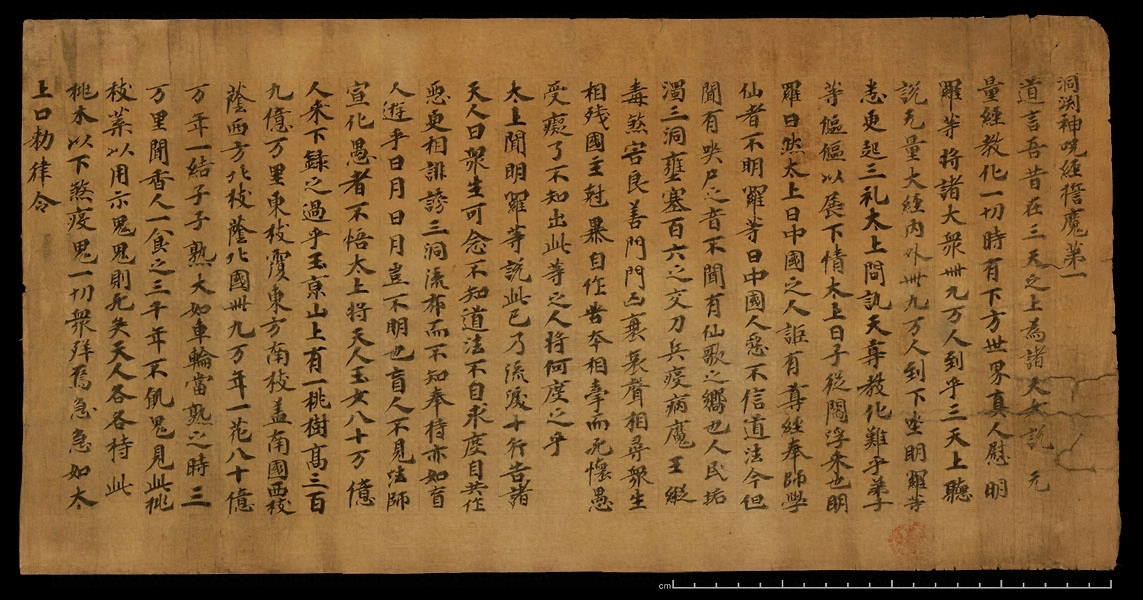 洞渕神呪經擔魔第一
道言吾昔在三天之上為諸天女說无
量經教化一切時有下方世界真人慰明
羅等將諸大衆卌九万人到乎三天上聽
說无量大經內外卌九万人到下坐明羅等
悉更起三礼太上問訊天尊教化難乎弟子
等傴傴以展下情太上曰子從閻浮來也明
羅曰然太上曰中國之人詎有尊經奉師學
仙者不明羅等曰中國人悉不信道法今但
聞有哭尸之音不聞有仙歌之嚮也人民垢
濁三洞壅塞百六之交刀兵疫病魔王縱
毒煞害良善門門凶衰哀聲相尋衆生
相殘國主尅暴自作苦本相牽而死懷愚
受癡了不知出此等之人將何度之乎
太上聞明羅等說此已乃流淚十行告諸
天人曰衆生可念不知道法不自求度自共作
惡更相誹謗三洞流布而不知奉持亦如盲
人遊乎日月日月豈不明也盲人不見法師
宣化愚者不悟太上將天人玉女八十万億
人來下錄之過乎玉京山上有一桃樹髙三百
九億万里東枝覆東方南枝盖南國西枝
蔭西方北枝蔭北國卌九万年一花八十億
万年一結子子熟大如車輪當熟之時三
万里聞香人一食之三千年不飢鬼見此桃
枝葉以用示鬼鬼則死矣天人各各持此
桃木以下煞疫鬼一切衆殃焉急急如太
上口勑律令